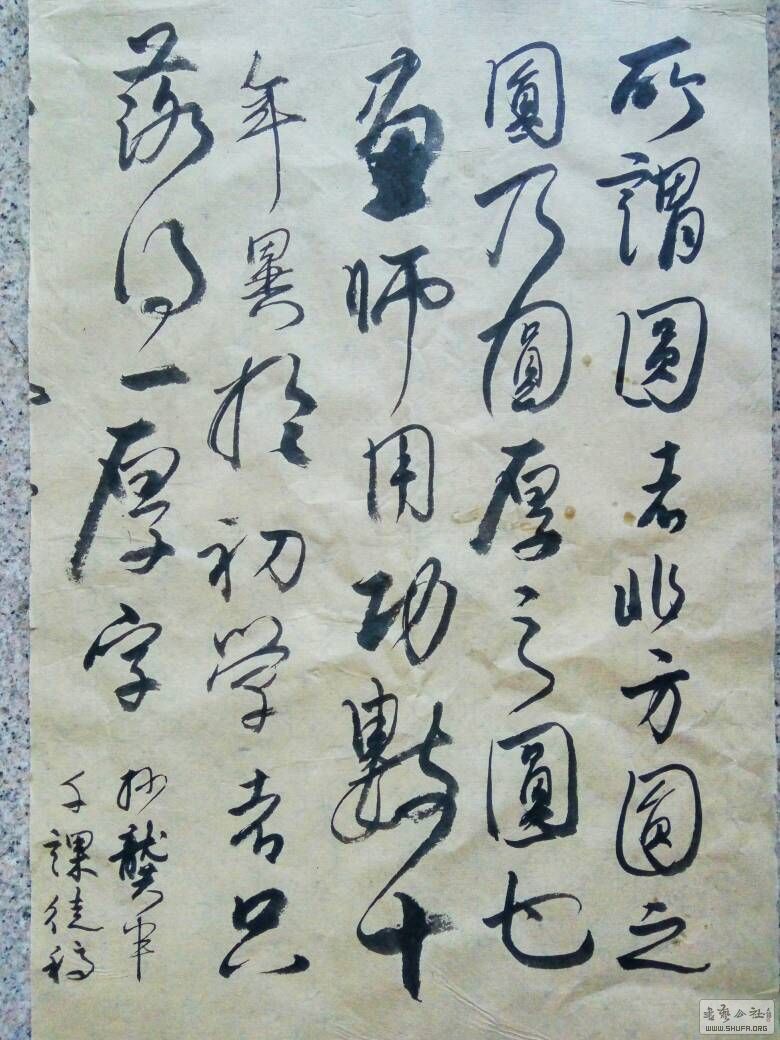 所謂圓者非方圓之
圓乃圓厚之圓也
畫師用功數十
年異於初學者只
落得一厚字
抄龔半
千課徒稿
書藝公社
WWW.SHUFA.ORG